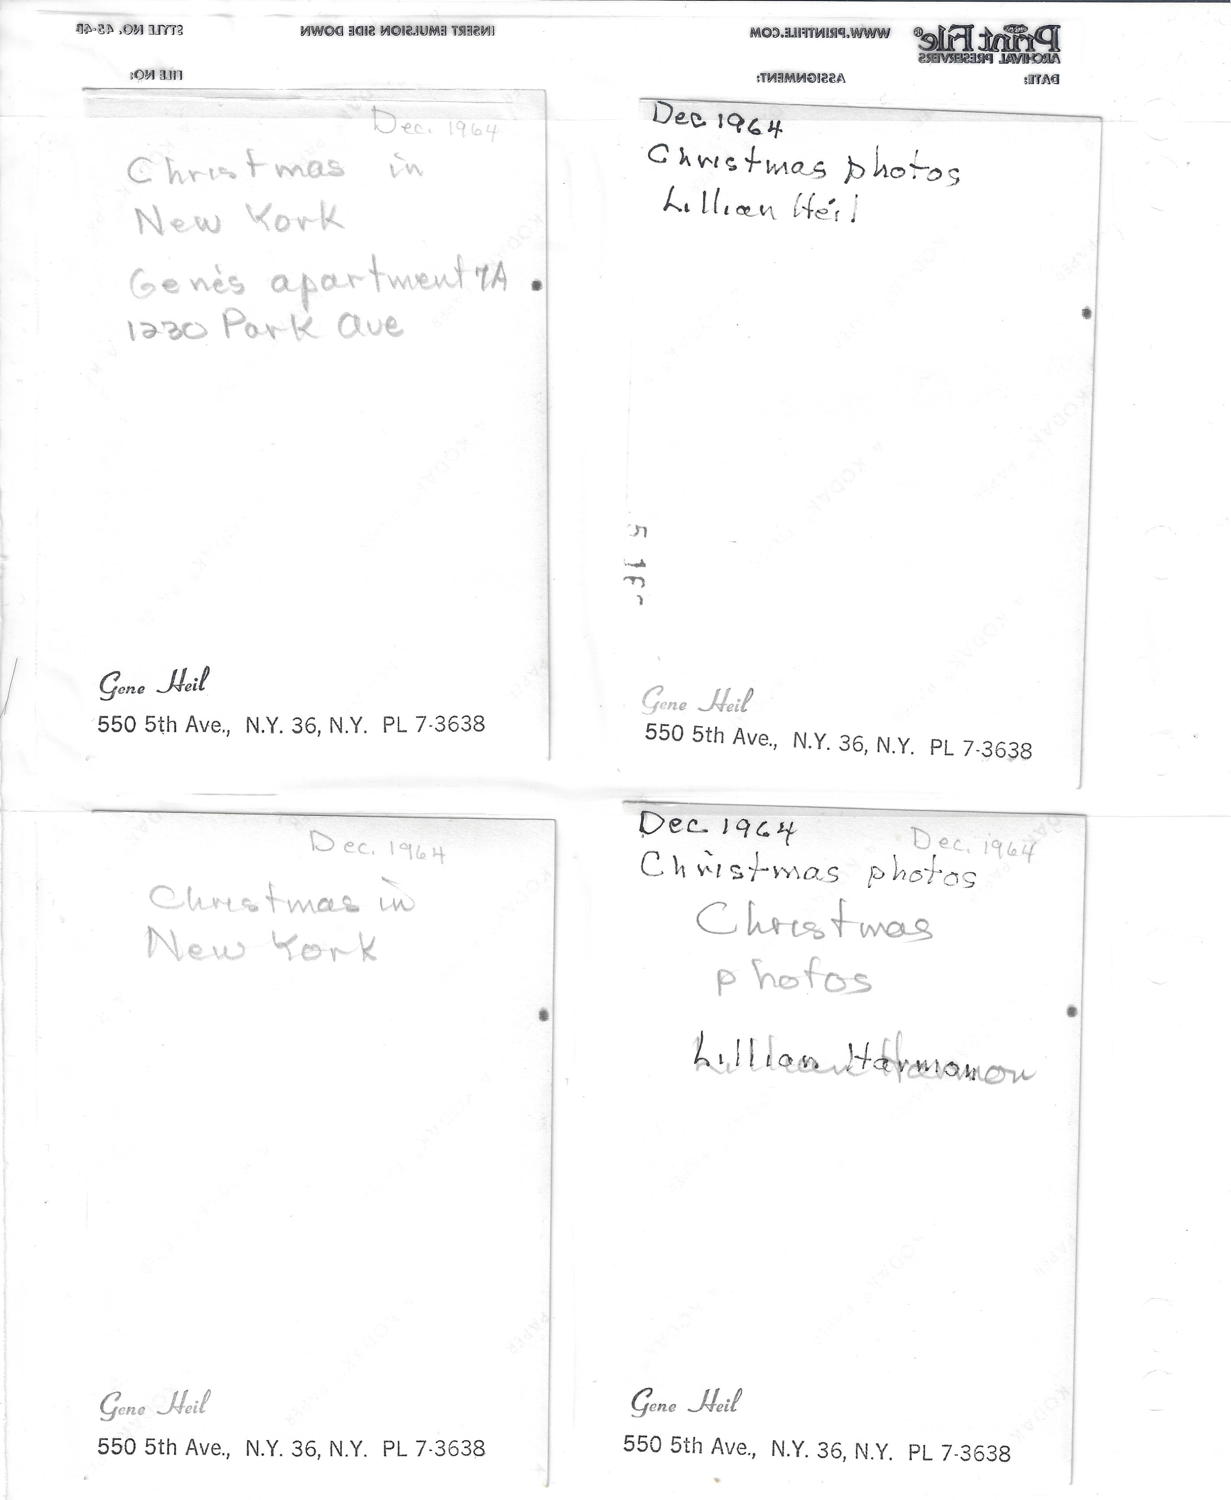 STYLE NO. 45-4B
INSERT EMULSION SIDE DOWN
WWW.PRINTFILE.COM
Print File®
ARCHIVAL PRESERVERS
FILE NO:
ASSIGNMENT:
DATE:
Dec. 1964
Christmas in
New York
Gene's apartment 7A
1230 Park Ave
Gene Heil
550 5th Ave., N.Y. 36, N.Y. PL 7-3638
Dec 1964
Christmas photos
Lillian Heil
Gene Heil
550 5th Ave., N.Y. 36, N.Y. PL 7-3638
Dec. 1964
Christmas in
New York
Gene Heil
550 5th Ave., N.Y. 36, N.Y. PL 7-3638
Dec 1964
Dec. 1964
Christmas photos
Christmas
photos
Lillian Harmon
Gene Heil
550 5th Ave., N.Y. 36, N.Y. PL 7-3638